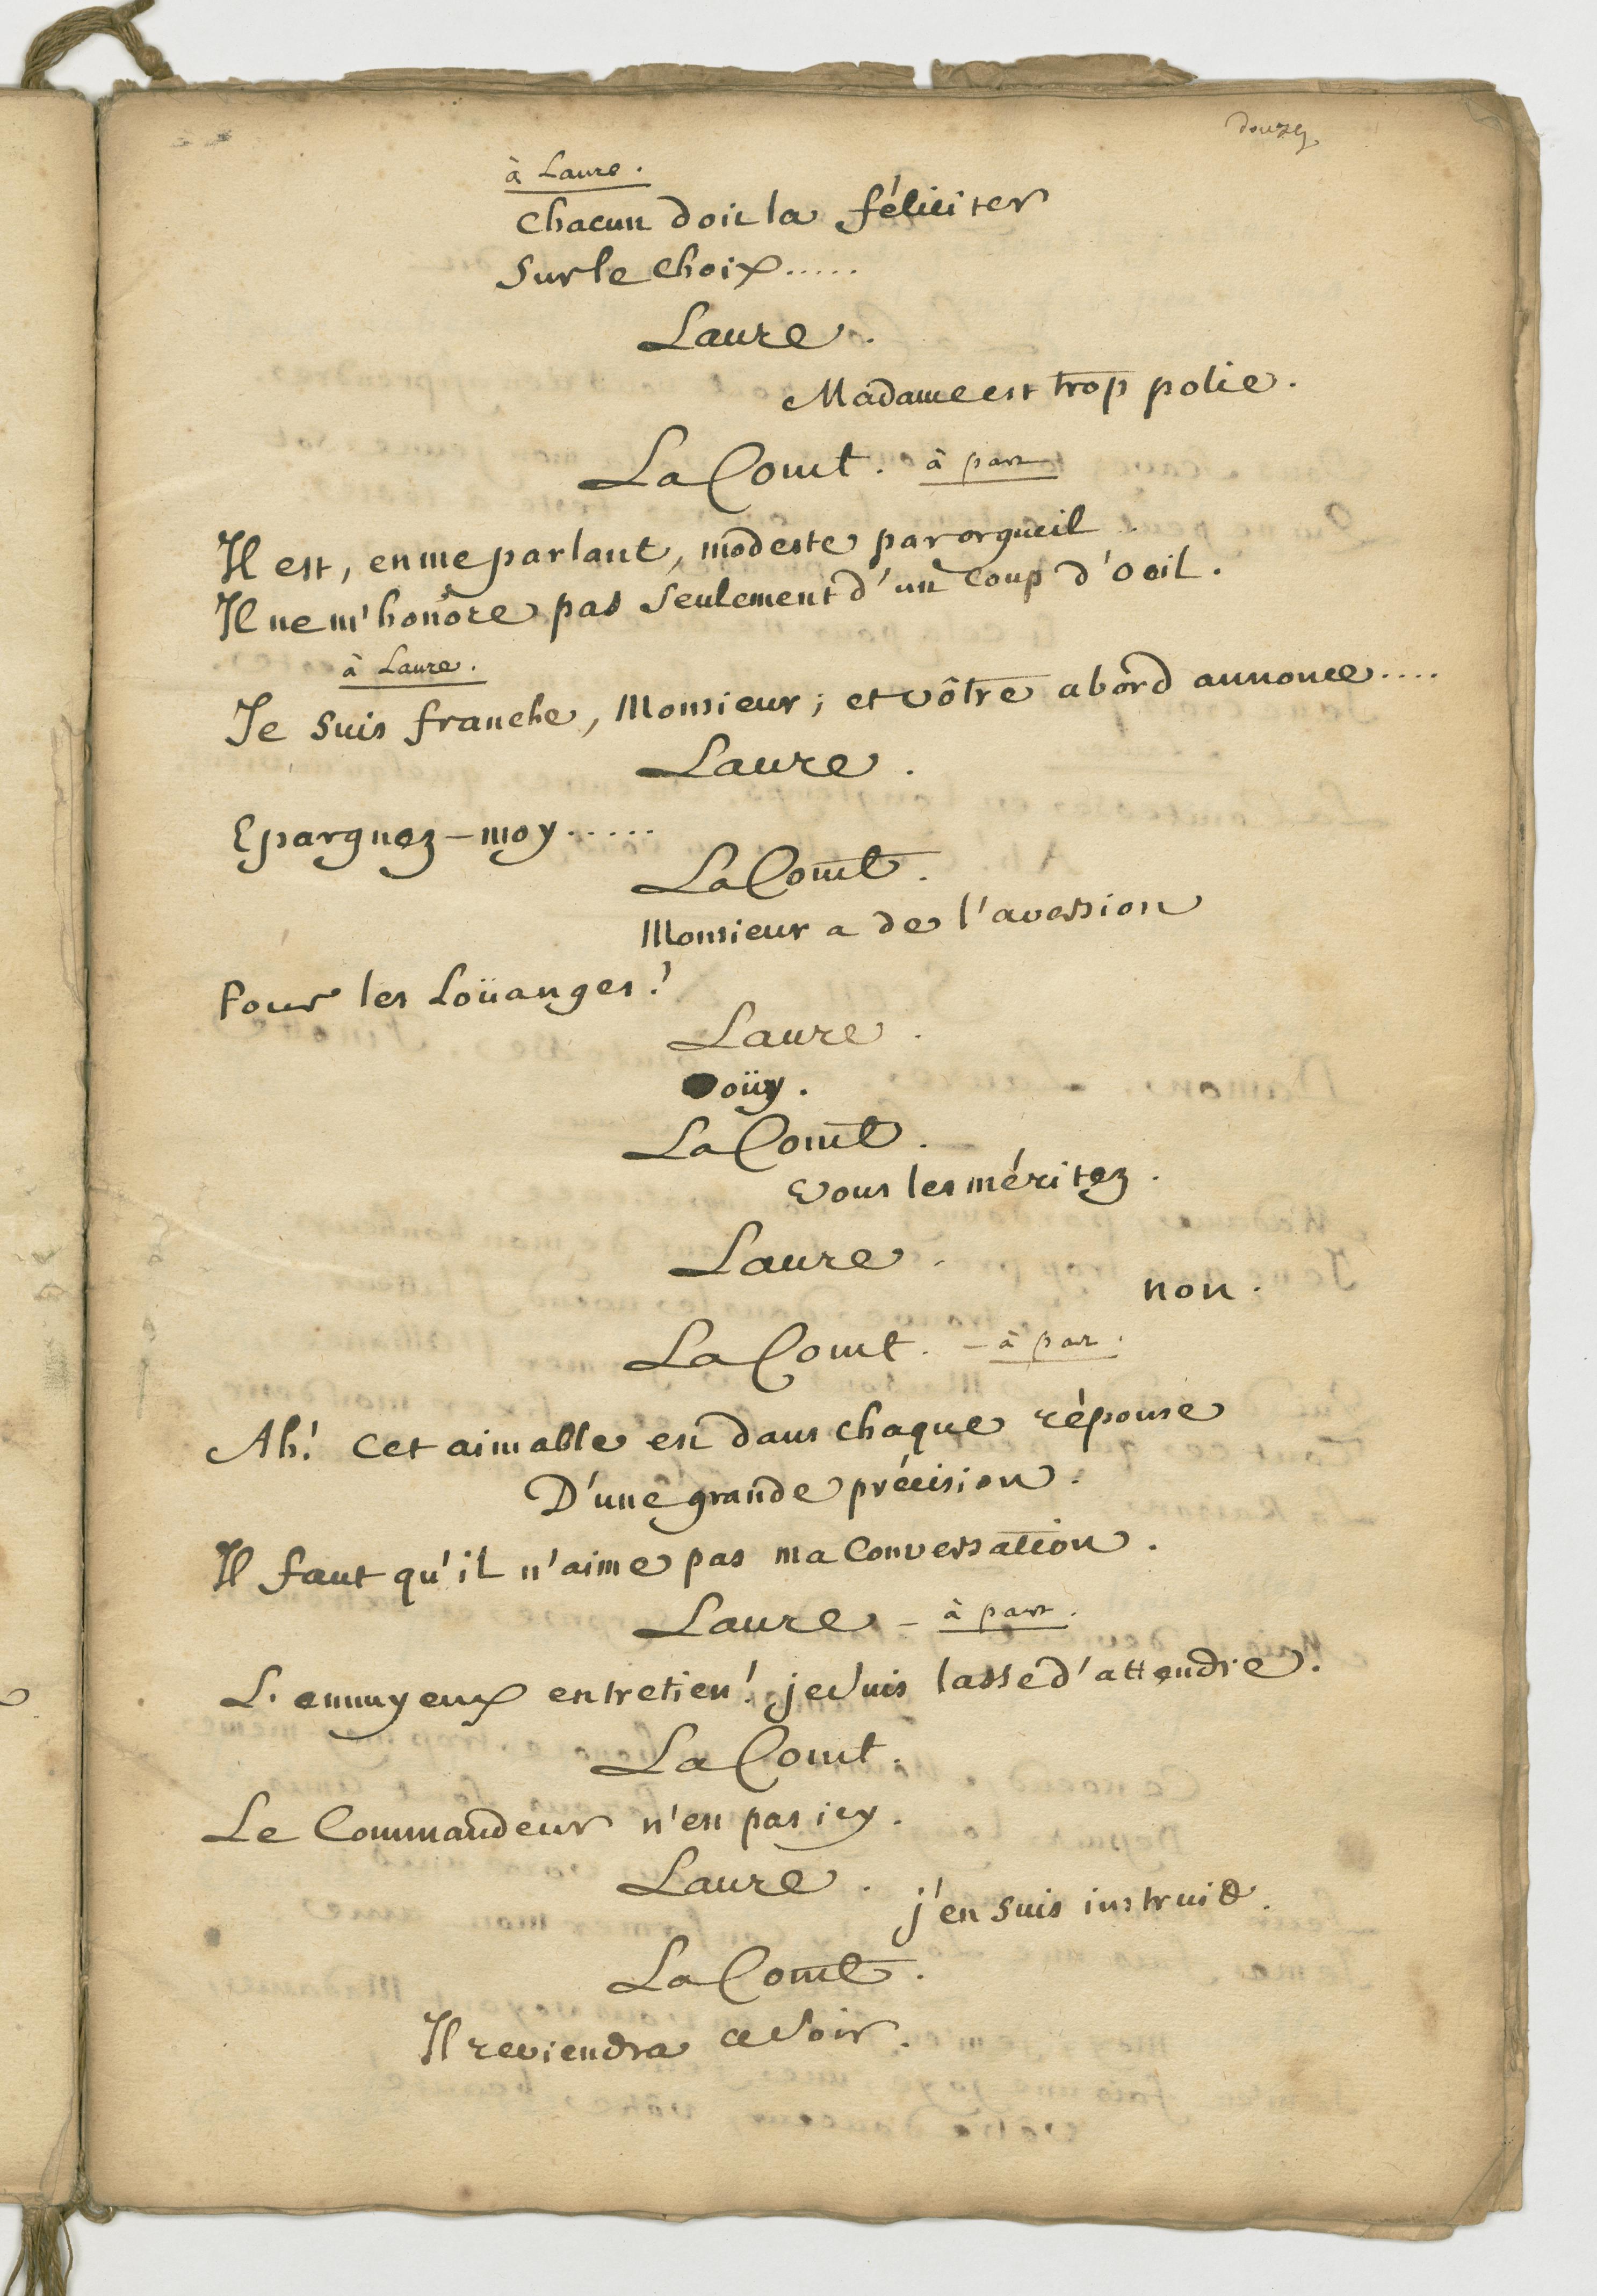 douze
à Laure.
Chacun doit la féliciter
Sur le Choix.....
Laure.
Madame est trop polie.
La Comt. à part
Il est, en me parlant, modeste par orgueil.
Il ne m'honore pas seulement d'un coup d'oeil.
à Laure.
Je suis franche, Monsieur; et vôtre abord annonce....
Laure.
Epargnez-moy.....
La Comt.
Monsieur a de l'aversion
Pour les Loüanges!
Laure.
oüy.
La Comt.
Vous les méritez.
Laure.
non.
La Comt. - à par.
Ah! Cet aimable est dans chaque réponse
D'une grande précision.
Il faut qu'il n'aime pas ma Conversation.
Laure - à part.
L'ennuyeux entretien! je suis lasse d'attendre.
La Comt.
Le Commandeur n'est pas icy.
Laure.
j'en suis instruit.
La Comt.
Il reviendra ce soir.